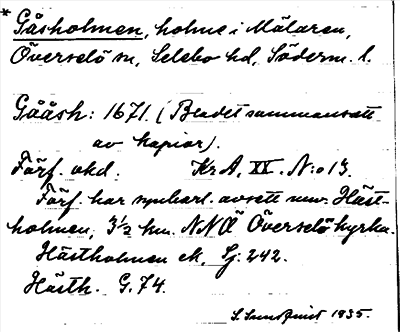 * Gåsholmen, holme i Mälaren,
Överselö sn, Selebo hd, Söderm. l.
Gååsh: 1671. (Bladet sammansatt
av kopior).
Förf. okd. Kr A, XX. N:o 13.
Förf. har synbarl. avsett nuv. Häst-
holmen, 3½ km. NNÖ Överselö kyrka.
Hästholmen ek. Sj. 242.
Hästh. G. 74.
S. Sundquist 1935.